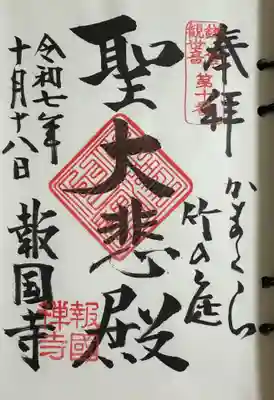 奉拝
かまくら
竹の庭
聖大悲殿
報国寺
令和七年
十月十八日
報國
禅寺